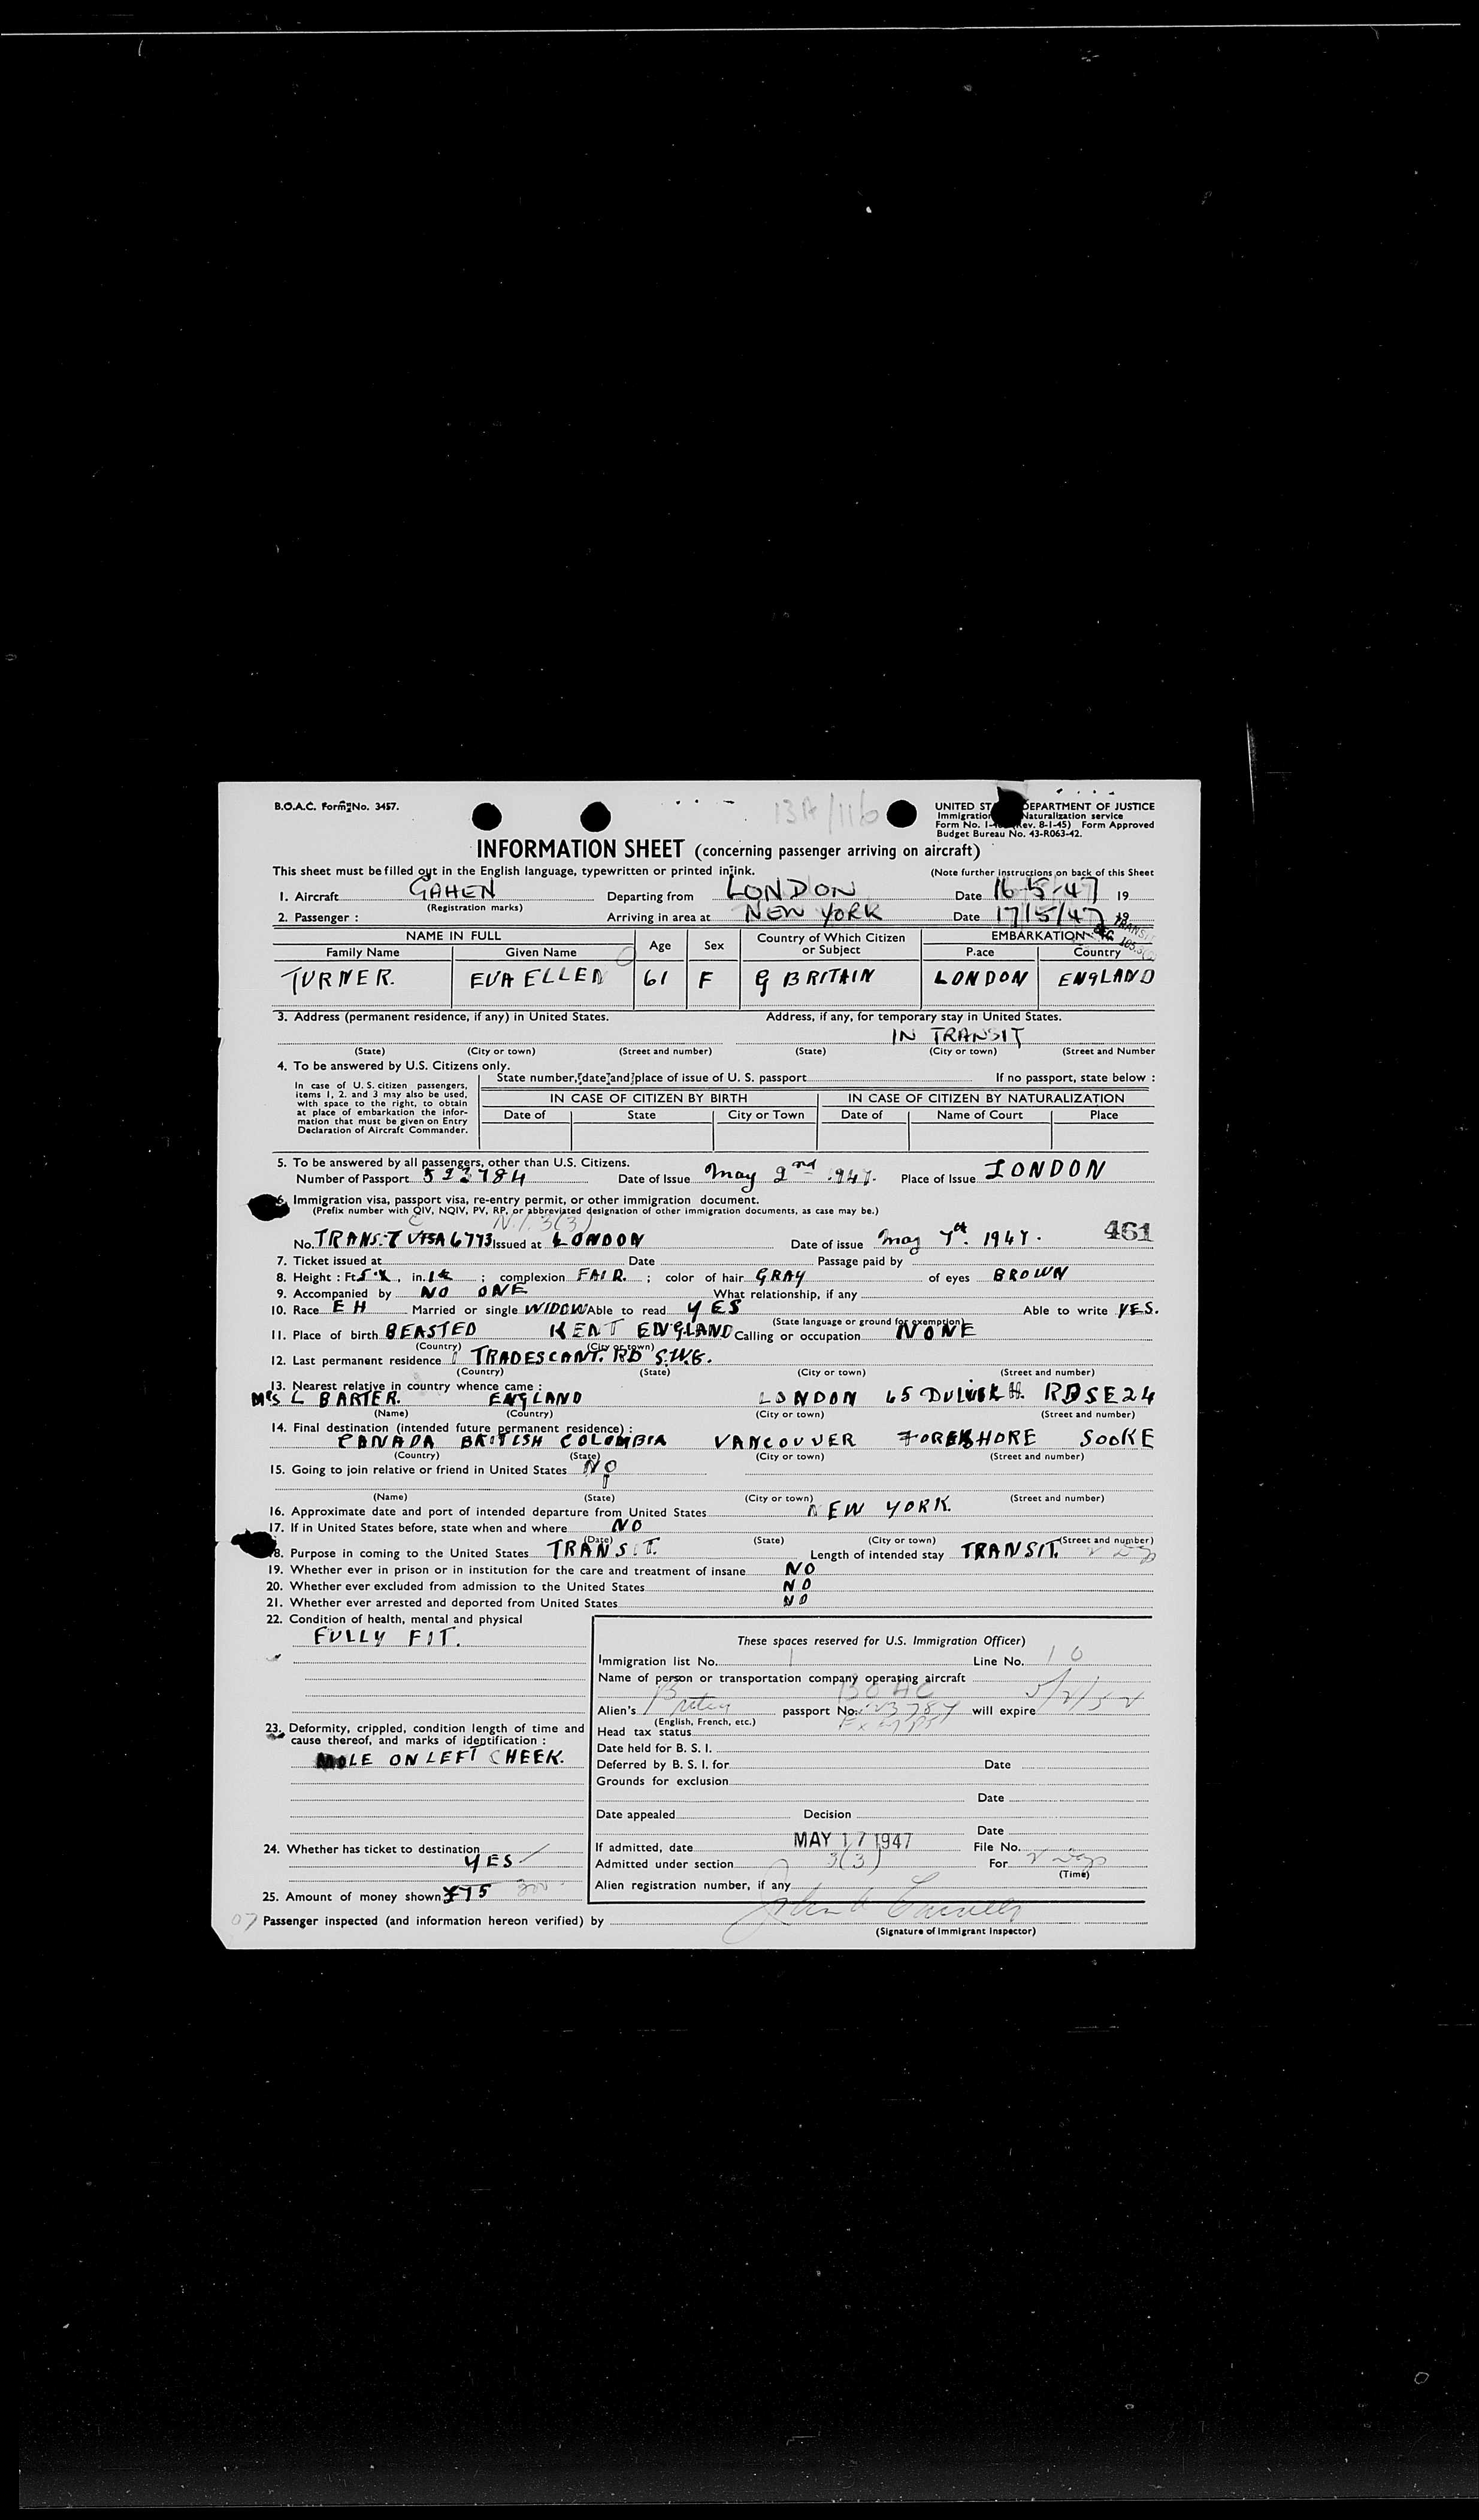 B.O.A.C. Form No. 3457.
13A/116
UNITED ST DEPARTMENT OF JUSTICE
Immigration Naturalization service
Form No. I- ev. 8-1-45) Form Approved
Budget Bureau No. 43-R063-42.
INFORMATION SHEET (concerning passenger arriving on aircraft)
This sheet must be filled out in the English language, typewritten or printed in ink. (Note further instructions on back of this Sheet
1. Aircraft GAHEN Departing from LONDON Date 16-5-47 19
(Registration marks)
2. Passenger : Arriving in area at NEW YORK Date 17/5/47 19
TRANSIT
NAME IN FULL Age Sex Country of Which Citizen or Subject EMBARKATION
Family Name Given Name Place Country
TURNER. EVA ELLEN 61 F G BRITAIN LONDON ENGLAND
3. Address (permanent residence, if any) in United States. Address, if any, for temporary stay in United States.
IN TRANSIT
(State) (City or town) (Street and number) (State) (City or town) (Street and Number
4. To be answered by U.S. Citizens only.
State number, date and place of issue of U. S. passport If no passport, state below :
In case of U. S. citizen passengers,
items 1, 2. and 3 may also be used,
with space to the right, to obtain
at place of embarkation the infor-
mation that must be given on Entry
Declaration of Aircraft Commander.
IN CASE OF CITIZEN BY BIRTH IN CASE OF CITIZEN BY NATURALIZATION
Date of State City or Town Date of Name of Court Place
5. To be answered by all passengers, other than U.S. Citizens.
Number of Passport 523784 Date of Issue May 2nd 1947. Place of Issue LONDON
6. Immigration visa, passport visa, re-entry permit, or other immigration document.
(Prefix number with QIV, NQIV, PV, RP, or abbreviated designation of other immigration documents, as case may be.)
N.I. 3(3)
461
No. TRANS.T VISA 6773 Issued at LONDON Date of issue May 7th. 1947.
7. Ticket issued at Date Passage paid by
8. Height : Ft. 5 , in. ; complexion FAIR. ; color of hair GRAY of eyes BROWN
9. Accompanied by NO ONE What relationship, if any
10. Race EH Married or single WIDOW Able to read YES Able to write YES.
(State language or ground for exemption)
11. Place of birth BEASTED KENT ENGLAND Calling or occupation NONE
(Country) (City or town)
12. Last permanent residence TRADESCANT. RD S.W.8.
(Country) (State) (City or town) (Street and number)
13. Nearest relative in country whence came :
Mrs L BARTER. ENGLAND LONDON 65 DULWICH RD SE24
(Name) (Country) (City or town) (Street and number)
14. Final destination (intended future permanent residence) :
CANADA BRITISH COLOMBIA VANCOUVER FORESHORE SOOKE
(Country) (State) (City or town) (Street and number)
15. Going to join relative or friend in United States NO
(Name) (State) (City or town) (Street and number)
16. Approximate date and port of intended departure from United States NEW YORK.
17. If in United States before, state when and where NO
(Date) (State) (City or town) (Street and number)
18. Purpose in coming to the United States TRANSIT. Length of intended stay TRANSIT.
19. Whether ever in prison or in institution for the care and treatment of insane NO
20. Whether ever excluded from admission to the United States NO
21. Whether ever arrested and deported from United States NO
22. Condition of health, mental and physical
FULLY FIT.
These spaces reserved for U.S. Immigration Officer)
Immigration list No. 1 Line No. 10
Name of person or transportation company operating aircraft
BOAC
Alien's British passport No. 523784 will expire 5/2/52
(English, French, etc.)
Head tax status
23. Deformity, crippled, condition length of time and
cause thereof, and marks of identification :
MOLE ON LEFT CHEEK.
Date held for B. S. I.
Deferred by B. S. I. for Date
Grounds for exclusion
Date
Date appealed Decision
Date
24. Whether has ticket to destination
YES
If admitted, date MAY 17 1947 File No.
Admitted under section 3(3) For 2 Days
(Time)
Alien registration number, if any
25. Amount of money shown £75
07 Passenger inspected (and information hereon verified) by
(Signature of Immigrant Inspector)